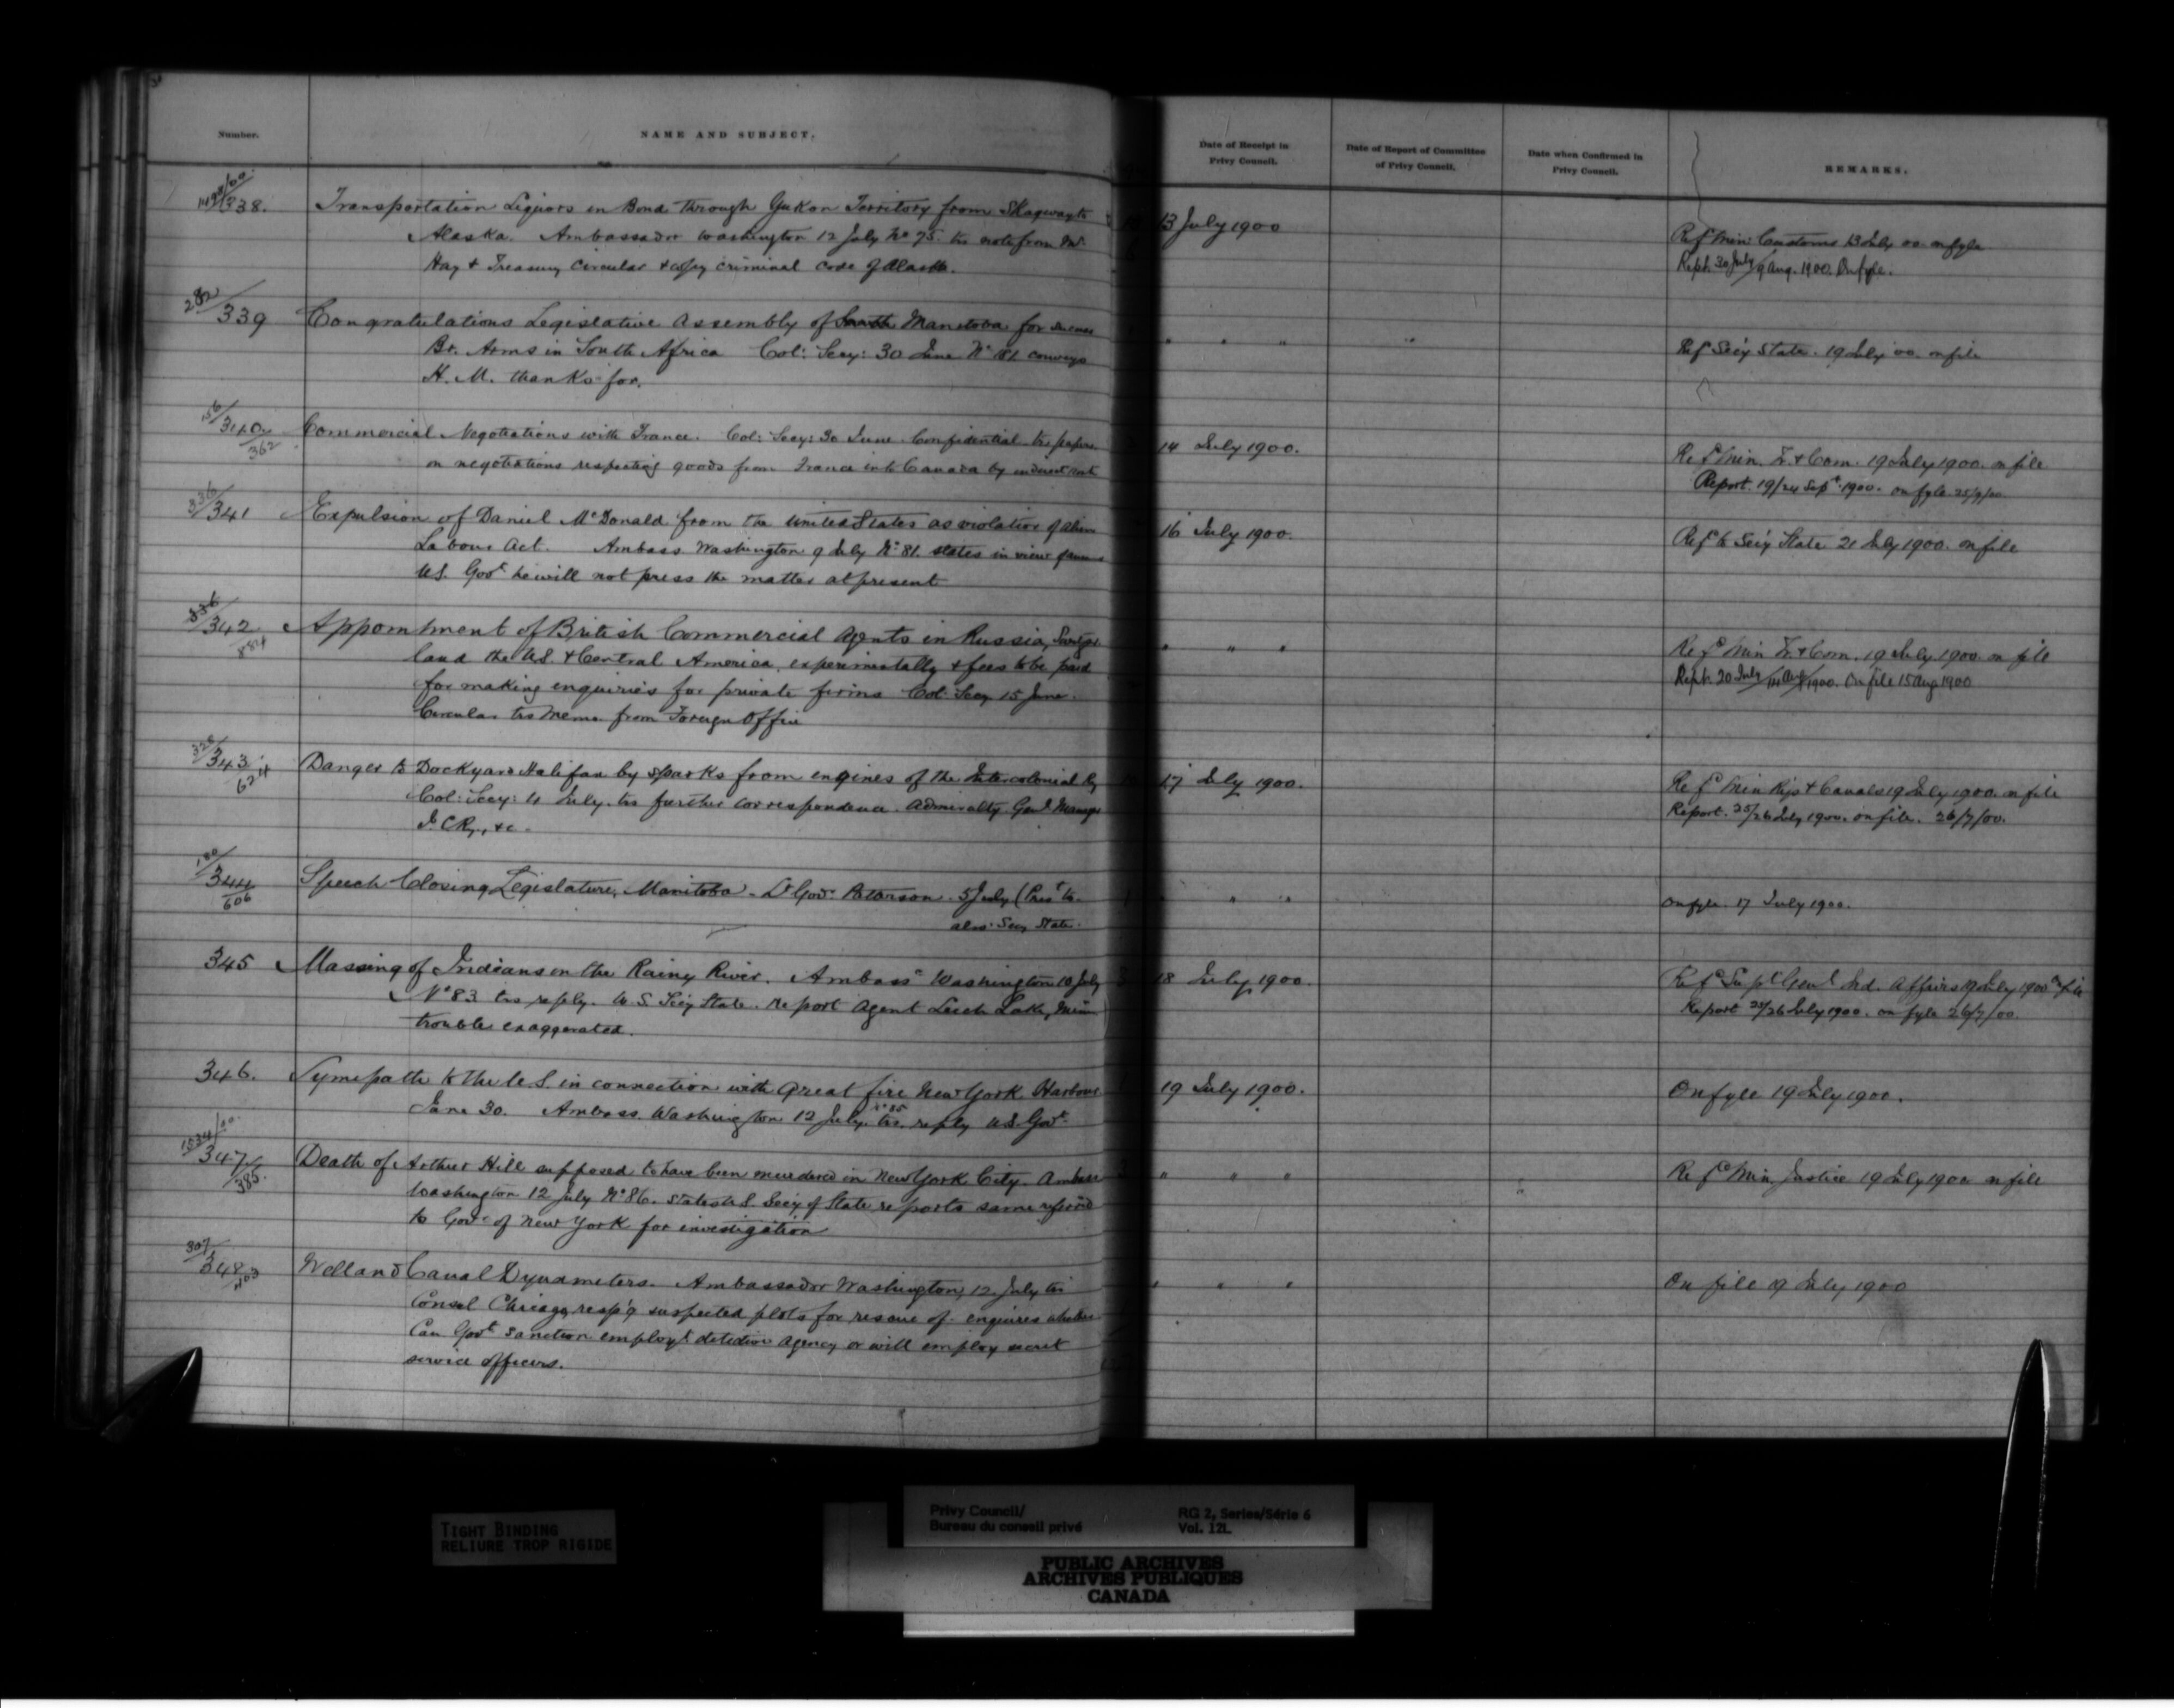 Number.
NAME AND SUBJECT.
Date of Receipt in
Privy Council.
Date of Report of Committee
of Privy Council.
Date when Confirmed in
Privy Council.
REMARKS.
338. Transportation Liquors in Bond through Yukon Territory from Skagway to
13 July 1900
Alaska. Ambassador Washington 12 July No 75. trs note from Mr
Refd Min: Customs 13 July 00. on fyle
Hay & Treasury Circular & copy criminal code of Alaska.
Rept. 30 July/9 Aug. 1900. On fyle.
282/339 Congratulations Legislative Assembly of South Manitoba for success
" " "
Br. Arms in South Africa Col: Secy: 30 June No 181 conveys
Refd Secy State. 19 July 00. on file
H. M. thanks for.
156/340/362 Commercial Negotiations with France. Col: Secy: 30 June Confidential trs papers
14 July 1900.
on negotiations respecting goods from France into Canada by indirect route
Refd Min. Tr. & Com. 19 July 1900. on file
Report. 19/24 Sept. 1900. on fyle 25/9/00
336/341 Expulsion of Daniel McDonald from the United States as violation of Alien
16 July 1900.
Labour Act. Ambass Washington 9 July No 81. states in view from
Refd to Secy State 21 July 1900. on file
U.S. Govt he will not press the matter at present
342/884 Appointment of British Commercial Agents in Russia, Switzer
" " "
land the U.S. & Central America, experimentally & fees to be paid
Refd Min Tr. & Com. 19 July 1900. on file
for making enquiries for private firms Col: Secy 15 June.
Rept. 20 July/14 Aug/1900. On file 15 Aug 1900
Circular trs Memo. from Foreign Office
326/343/624 Danger to Dockyard Halifax by sparks from engines of the Intercolonial Ry
17 July 1900.
Col: Secy: 4 July. trs further correspondence. Admiralty Genl Manager
Refd Min Rys & Canals 19 July 1900. on file
I. C Ry., &c.
Report. 25/26 July 1900. on file. 26/7/00.
180/344/606 Speech Closing Legislature, Manitoba - Lt Govr Patterson. 5 July (Pres to
" " "
on fyle. 17 July 1900.
also Secy State.
345 Massing of Indians on the Rainy River. Ambassr Washington 10 July
18 July 1900.
No 83 trs reply. U.S. Secy State. Report Agent Leech Lake, Minn
Refd Supt Genl Ind. Affairs 19 July 1900 on file
trouble exaggerated.
Report 25/26 July 1900. on fyle 26/7/00.
346. Sympathy to the U.S. in connection with great fire New York Harbour
19 July 1900.
June 30. Ambass. Washington 12 July, No 85 trs. reply U.S. Govt
On fyle 19 July 1900.
1534/00. 347/385. Death of Arthur Hill supposed to have been murdered in New York City. Ambass
" " "
Washington 12 July No 86. states U.S. Secy of State reports same referred
Refd Min Justice 19 July 1900 on file
to Govr of New York for investigation
307/348/403 Welland Canal Dynamiters. Ambassador Washington, 12 July trs
" " "
On file 19 July 1900
Consul Chicago resp'g suspected plots for rescue of. enquires whether
Can Govt sanction employt detective agency or will employ secret
service officers.
TIGHT BINDING
RELIURE TROP RIGIDE
Privy Council/
Bureau du conseil privé
RG 2, Series/Série 6
Vol. 121.
PUBLIC ARCHIVES
ARCHIVES PUBLIQUES
CANADA